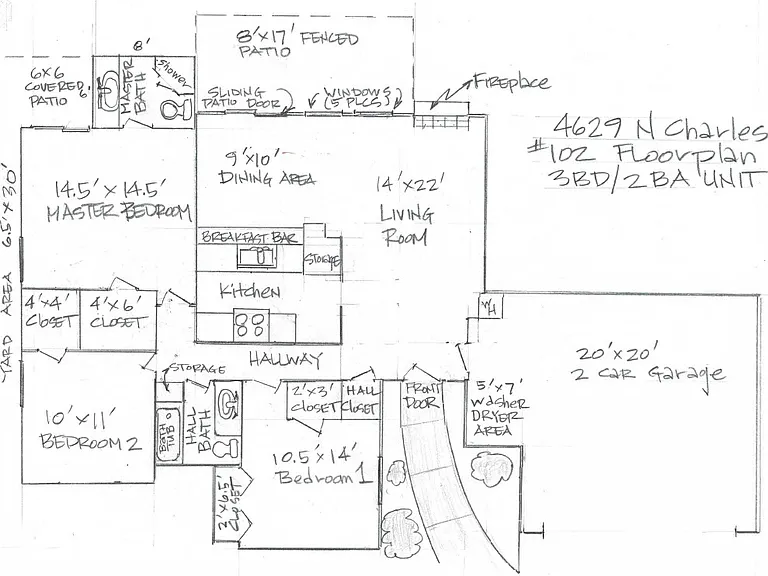 8' X 17' FENCED
PATIO
8'
6X6
COVERED
PATIO
6'
MASTER
BATH
Shower
SLIDING
PATIO DOOR
WINDOWS
(5 PLCS)
Fireplace
4629 N Charles
#102 Floorplan
3BD/2BA UNIT
9'X10'
DINING AREA
14' X 22'
LIVING
ROOM
14.5' X 14.5'
MASTER BEDROOM
YARD AREA 6.5' X 30'
BREAKFAST BAR
STORAGE
Kitchen
4'X4'
CLOSET
4'X6'
CLOSET
WH
HALLWAY
20' X 20'
2 Car Garage
STORAGE
2'X3'
CLOSET
HALL
CLOSET
FRONT
DOOR
5'X7'
Washer
DRYER
AREA
10' X 11'
BEDROOM 2
BATH
TUB
HALL
BATH
10.5' X 14'
Bedroom 1
2' X 6.5'
CLOSET